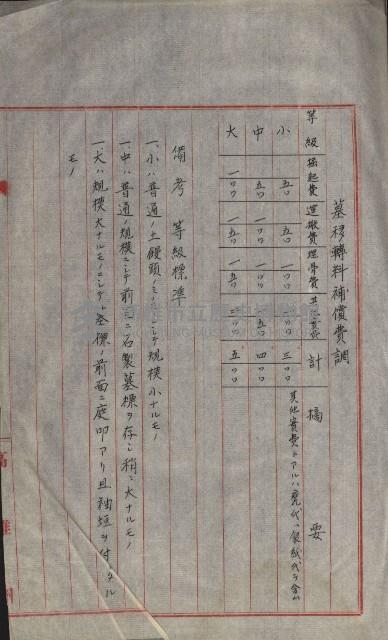 墓移轉料補償費調
等級 掘起費 運搬費 埋骨費 其他實費 計 摘要
小 五〇 五〇 一〇〇 一〇〇 三〇〇 其他實費トアルハ甕代、銀紙代ヲ含ム
中 五〇 一〇〇 一〇〇 一五〇 四〇〇
大 一〇〇 一五〇 一五〇
備考 等級標準
一、小ハ普通ノ土饅頭ノミニシテ規模小ナルモノ
一、中ハ普通ノ規模ニシテ前面ニ石製墓標ヲ存シ稍〻大ナルモノ
一、大ハ規模大ナルモノニシテ墓標ノ前面ニ庭叩アリ且袖垣ヲ付シタル
モノ
高雄州